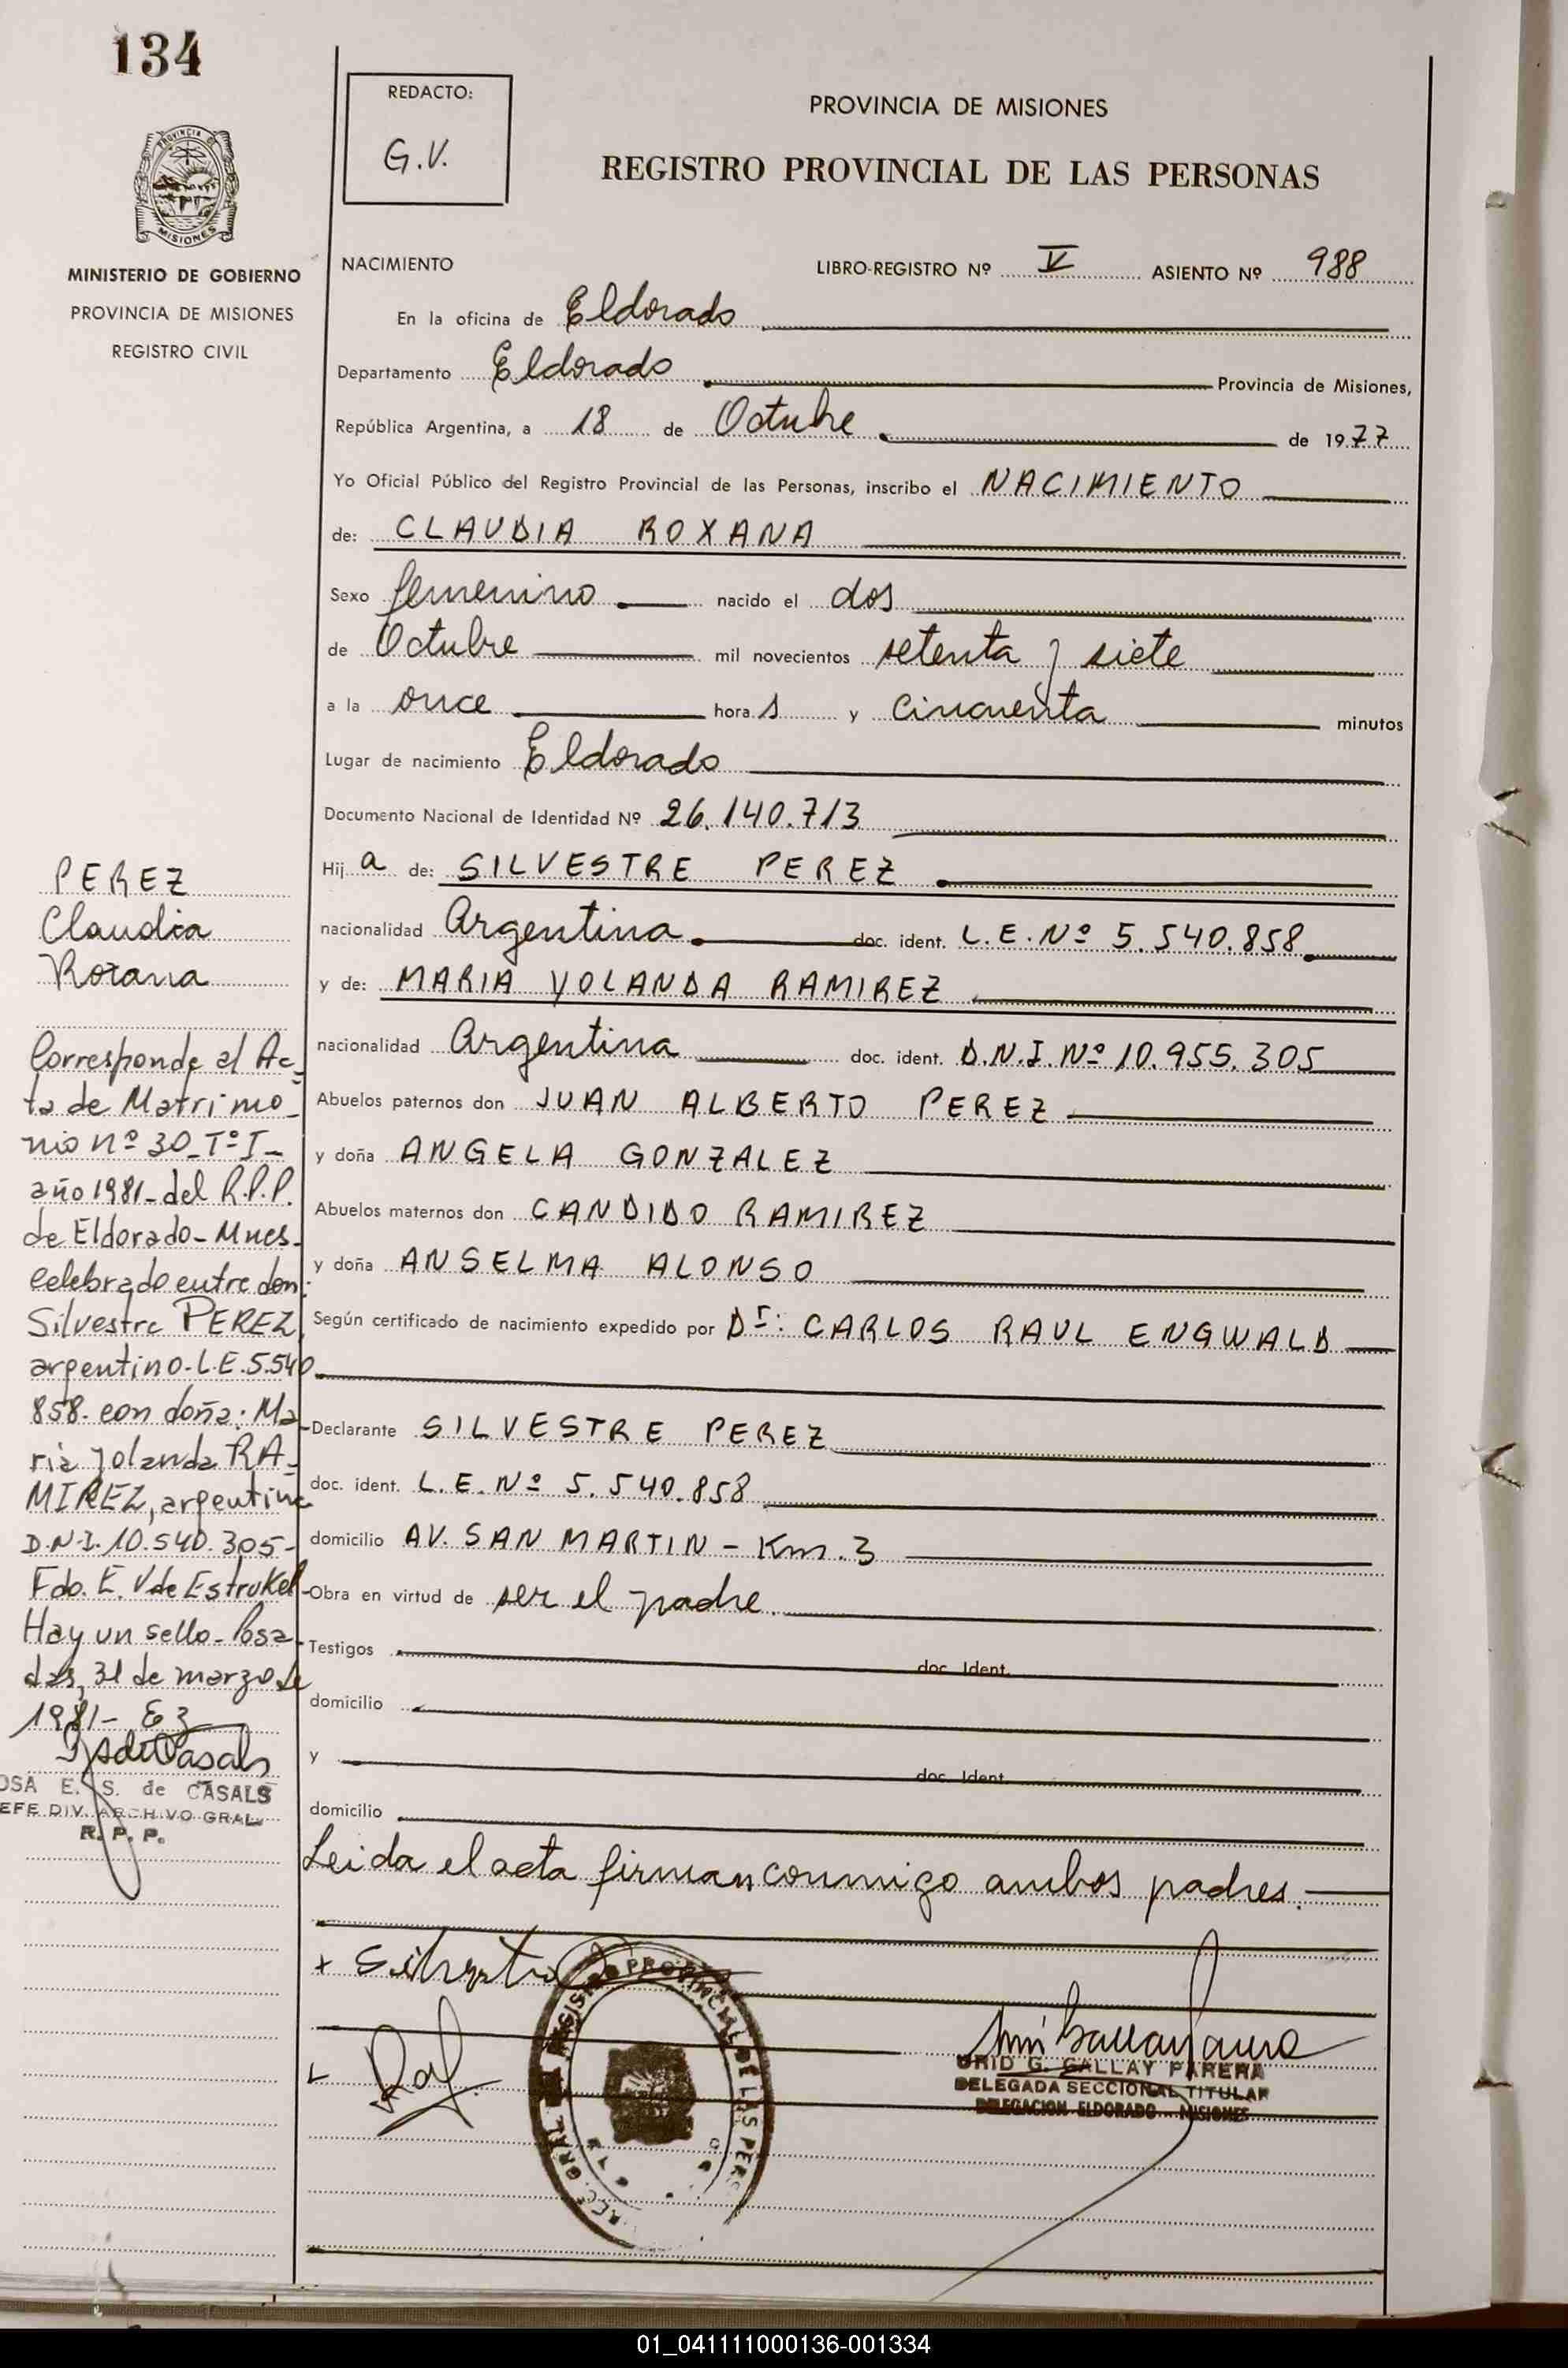 134
REDACTO:
G.V.
PROVINCIA DE MISIONES
REGISTRO PROVINCIAL DE LAS PERSONAS
PROVINCIA DE
MISIONES
MINISTERIO DE GOBIERNO
PROVINCIA DE MISIONES
REGISTRO CIVIL
NACIMIENTO LIBRO-REGISTRO Nº V ASIENTO Nº 988
En la oficina de Eldorado
Departamento Eldorado Provincia de Misiones,
República Argentina, a 18 de Octubre de 1977
Yo Oficial Público del Registro Provincial de las Personas, inscribo el NACIMIENTO
de: CLAUDIA ROXANA
Sexo femenino nacido el dos
de Octubre mil novecientos setenta y siete
a la once hora s y cincuenta minutos
Lugar de nacimiento Eldorado
Documento Nacional de Identidad Nº 26.140.713
Hij a de: SILVESTRE PEREZ
nacionalidad Argentina doc. ident. L.E.Nº 5.540.858
y de: MARIA YOLANDA RAMIREZ
nacionalidad Argentina doc. ident. D.N.I.Nº 10.955.305
Abuelos paternos don JUAN ALBERTO PEREZ
y doña ANGELA GONZALEZ
Abuelos maternos don CANDIDO RAMIREZ
y doña ANSELMA ALONSO
Según certificado de nacimiento expedido por Dr: CARLOS RAUL ENGWALD
Declarante SILVESTRE PEREZ
doc. ident. L.E.Nº 5.540.858
domicilio AV. SAN MARTIN - Km. 3
Obra en virtud de ser el padre.
Testigos doc. Ident.
domicilio
y doc. Ident.
domicilio
Leida el acta firman conmigo ambos padres.
PEREZ
Claudia
Roxana
Corresponde al Ac-
ta de Matrimo-
nio nº 30-Tº I-
año 1981-del R.P.P.
de Eldorado-Mnes-
celebrado entre don:
Silvestre PEREZ,
argentino-L.E.5.540.
858- con doña: Ma-
ria Yolanda RA-
MIREZ, argentina
D.N.I. 10.540.305-
Fdo. E. V de Estrukel
Hay un sello-Posa-
das, 31 de marzo de
1981-
OSA E. S. de CASALS
EFE DIV. ARCHIVO GRAL.
R. P. P.
Silvestre
URID G. GALLAY PARERA
DELEGADA SECCIONAL TITULAR
DELEGACION ELDORADO - MISIONES
01_041111000136-001334